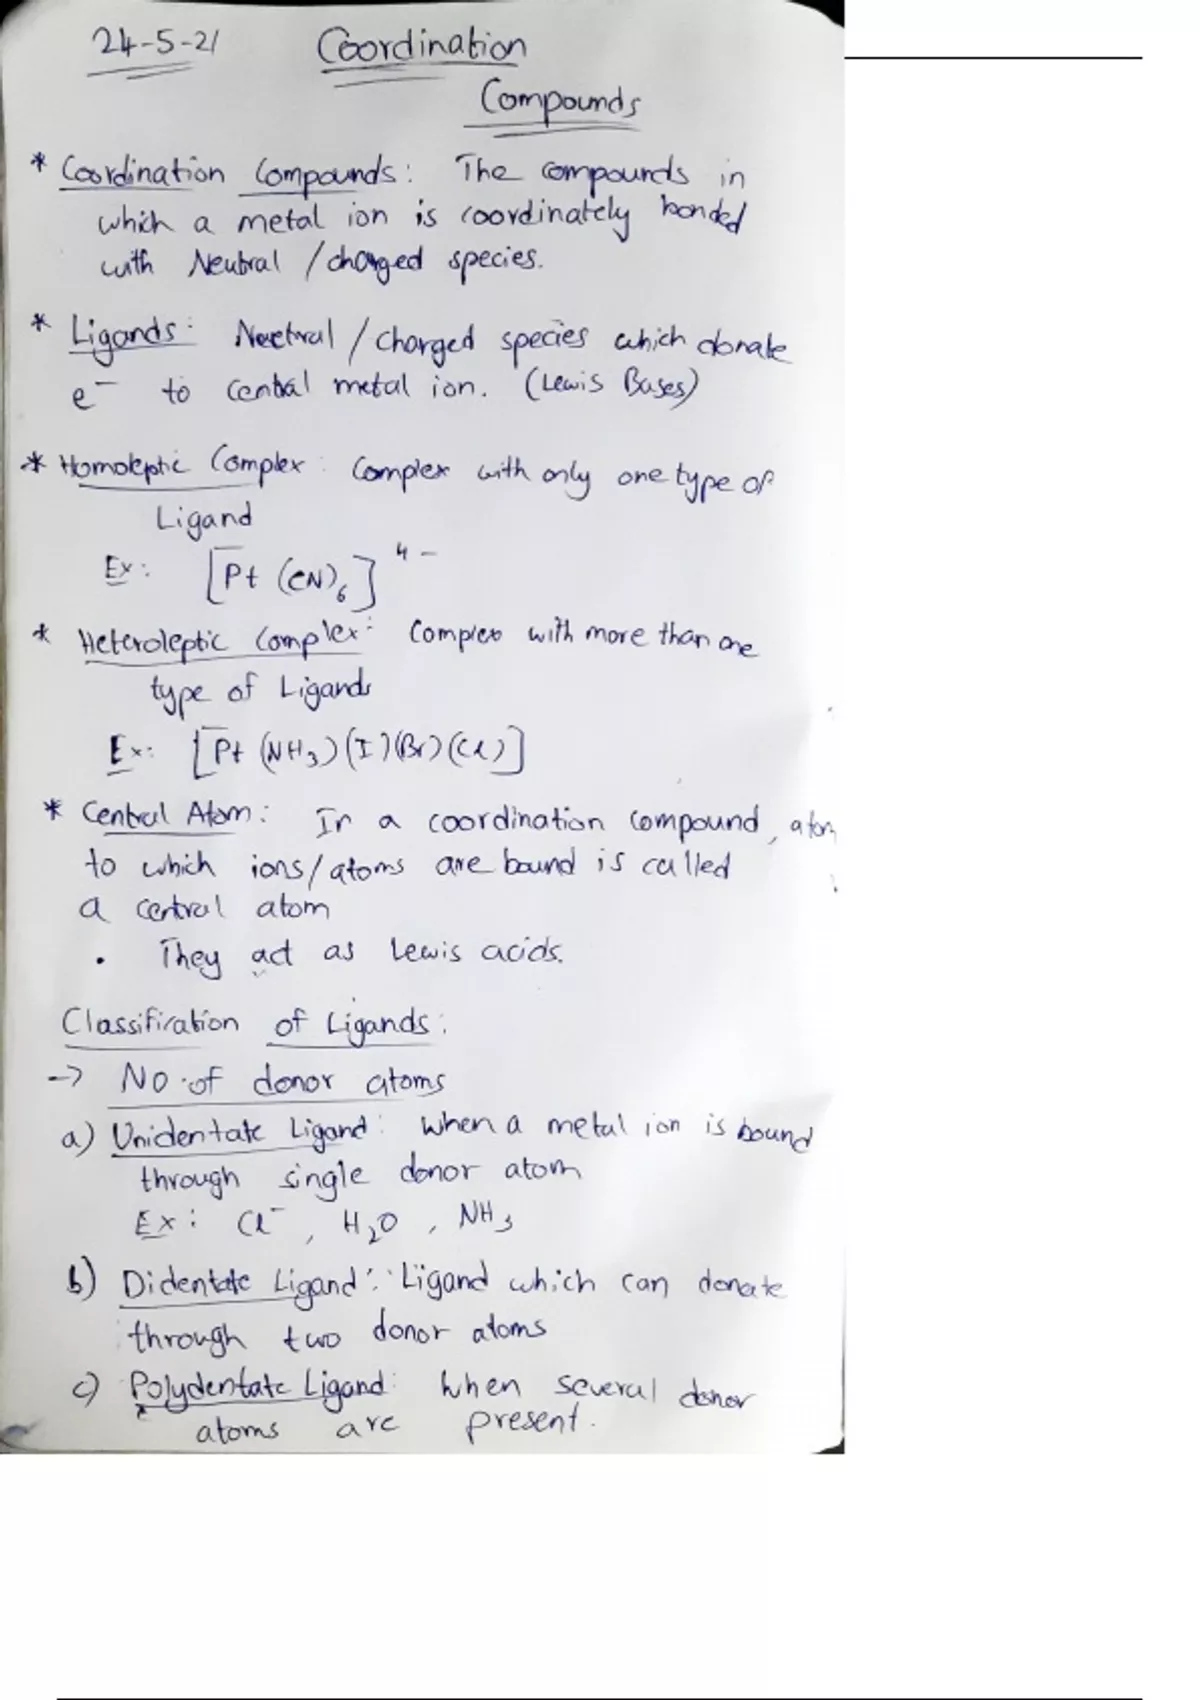 24-5-21 Coordination
Compounds
* Coordination Compounds: The compounds in
which a metal ion is coordinately bonded
with Neutral / charged species.
* Ligands: Neutral / charged species which donate
e⁻ to central metal ion. (Lewis Bases)
* Homoleptic Complex: Complex with only one type of
Ligand
Ex: [Pt (CN)₆]⁴⁻
* Heteroleptic Complex: Complex with more than one
type of Ligands
Ex: [Pt (NH₃)(I)(Br)(Cl)]
* Central Atom: In a coordination compound, atom
to which ions/atoms are bound is called
a central atom
• They act as Lewis acids.
Classification of Ligands:
-> No. of donor atoms
a) Unidentate Ligand: When a metal ion is bound
through single donor atom
Ex: Cl⁻, H₂O, NH₃
b) Didentate Ligand: Ligand which can donate
through two donor atoms
c) Polydentate Ligand: When several donor
atoms are present.